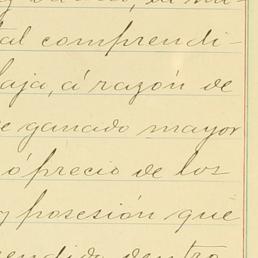 tal comprendi-
baja, á razón de
ganado mayor
ó precio de los
y posesión que
dentro